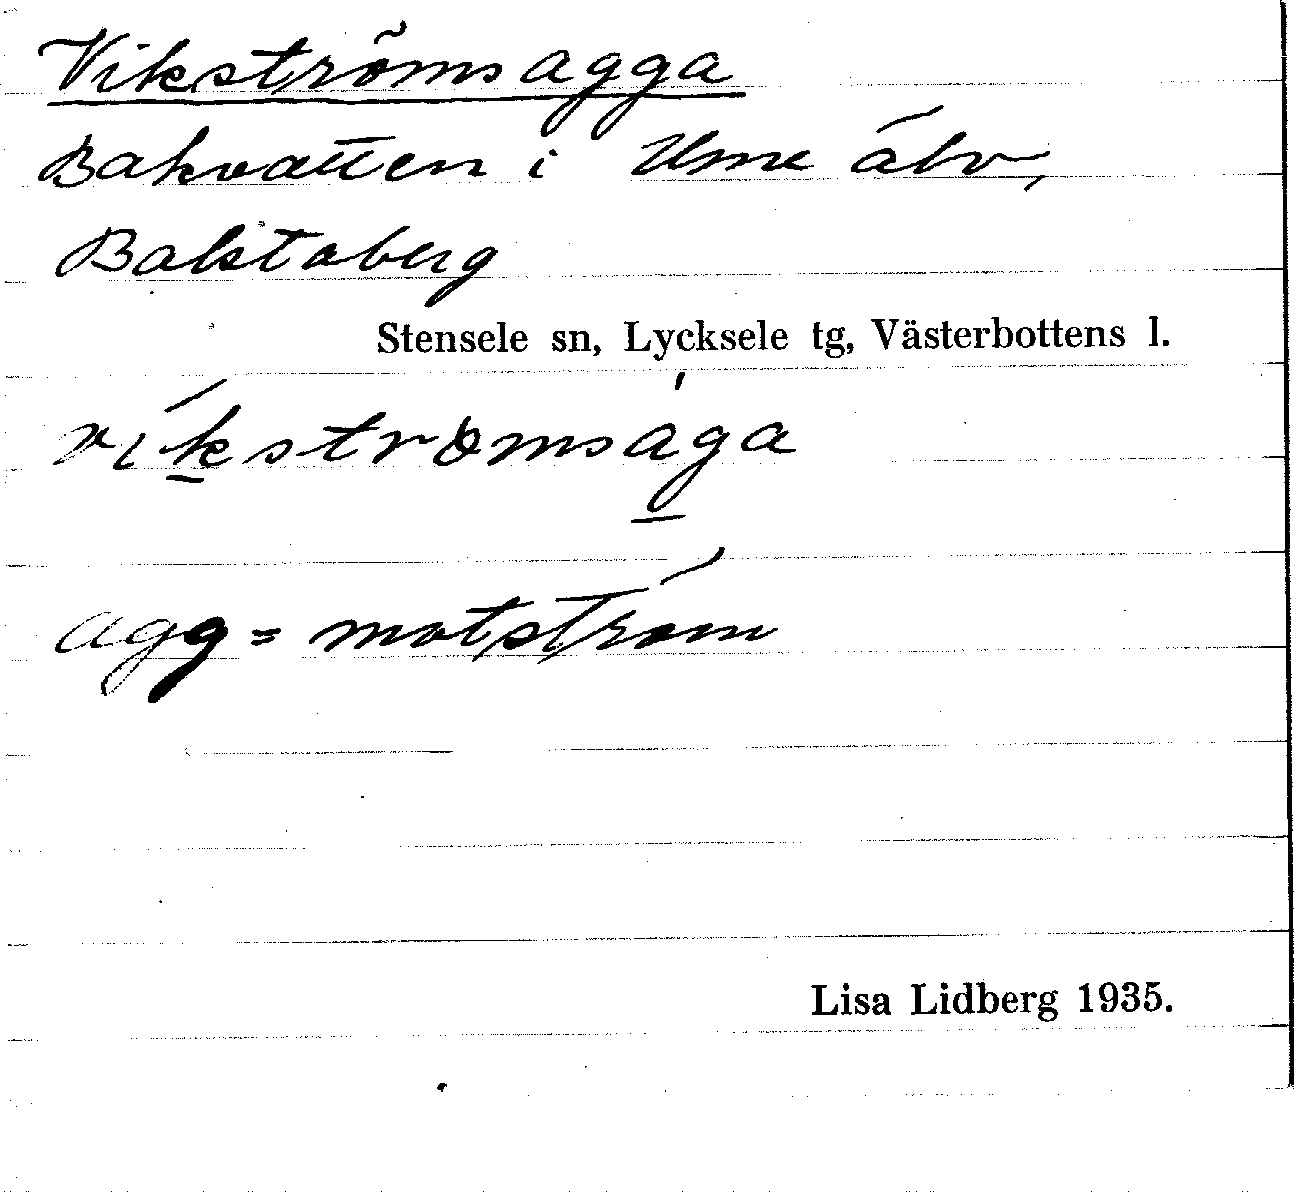 Vikströmsagga
Bakvatten i Ume älv,
Bakstaberg
Stensele sn, Lycksele tg, Västerbottens l.
víkstrømsága
agg = motström
Lisa Lidberg 1935.